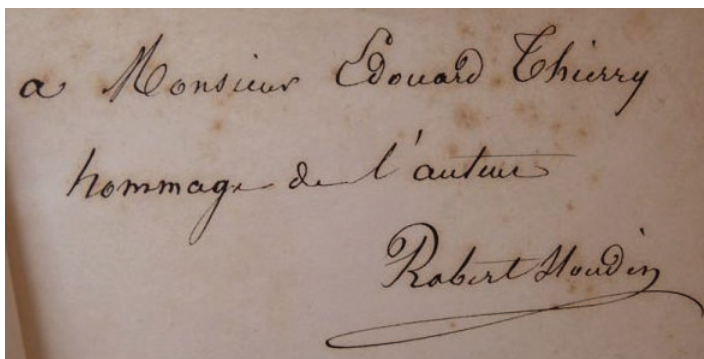 a Monsieur Edouard Thierry
hommage de l'auteur
Robert Houdin